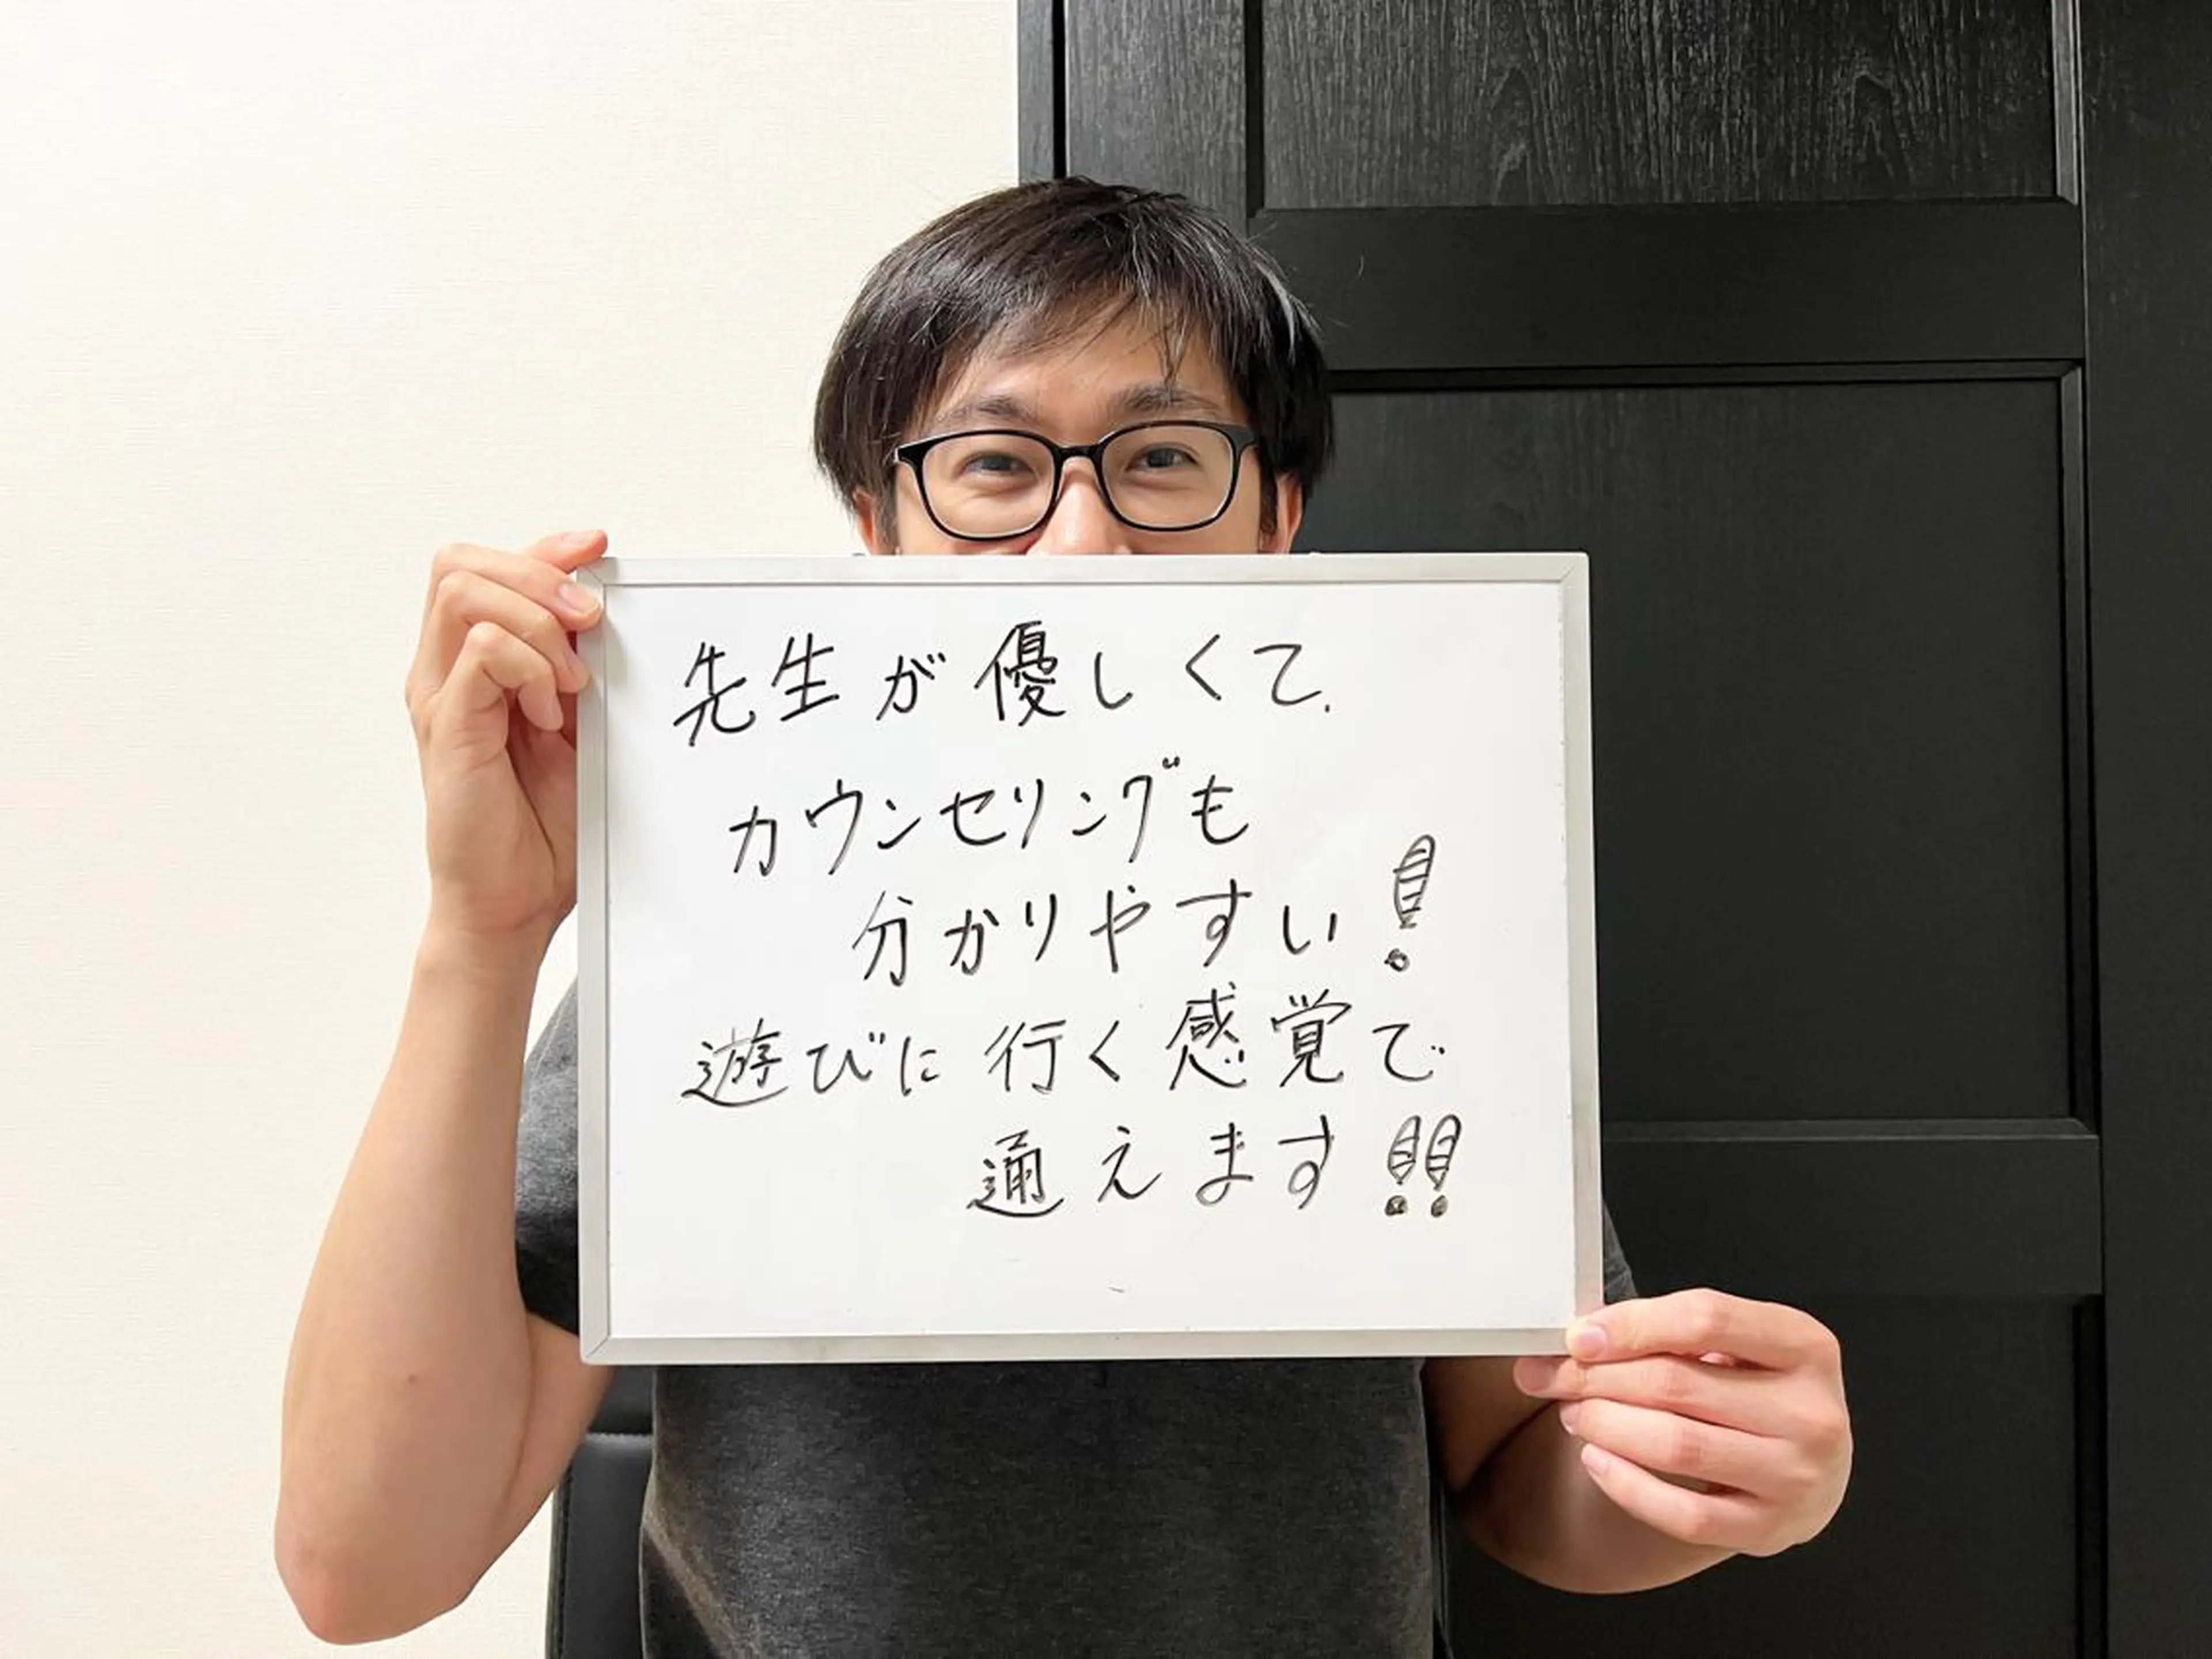 先生が優しくて、
カウンセリングも
分かりやすい!
遊びに行く感覚で
通えます!!